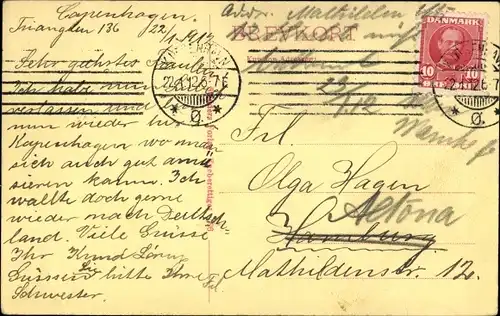 Copenhagen.
Triangelen 136 22/1 1912
Sehr geehrtes Fräulein
Ich habe nun
verlassen und
nun wieder
Kopenhagen wo man
sich auch gut amü
sieren kann. Ich
wollte doch gerne
wieder nach Deutsch-
land. Viele Grüsse
Ihr Knud
Grüssen Sie bitte Ihre Frl
Schwester.
Addr. Mathilden
BREVKORT
DANMARK
10 10
22.1.12.6-7E
Ø.
22.1.12.6-7
Ø.
23/1 12
Frl.
Olga Hagen
Altona
Hamburg
Mathildenstr. 12.